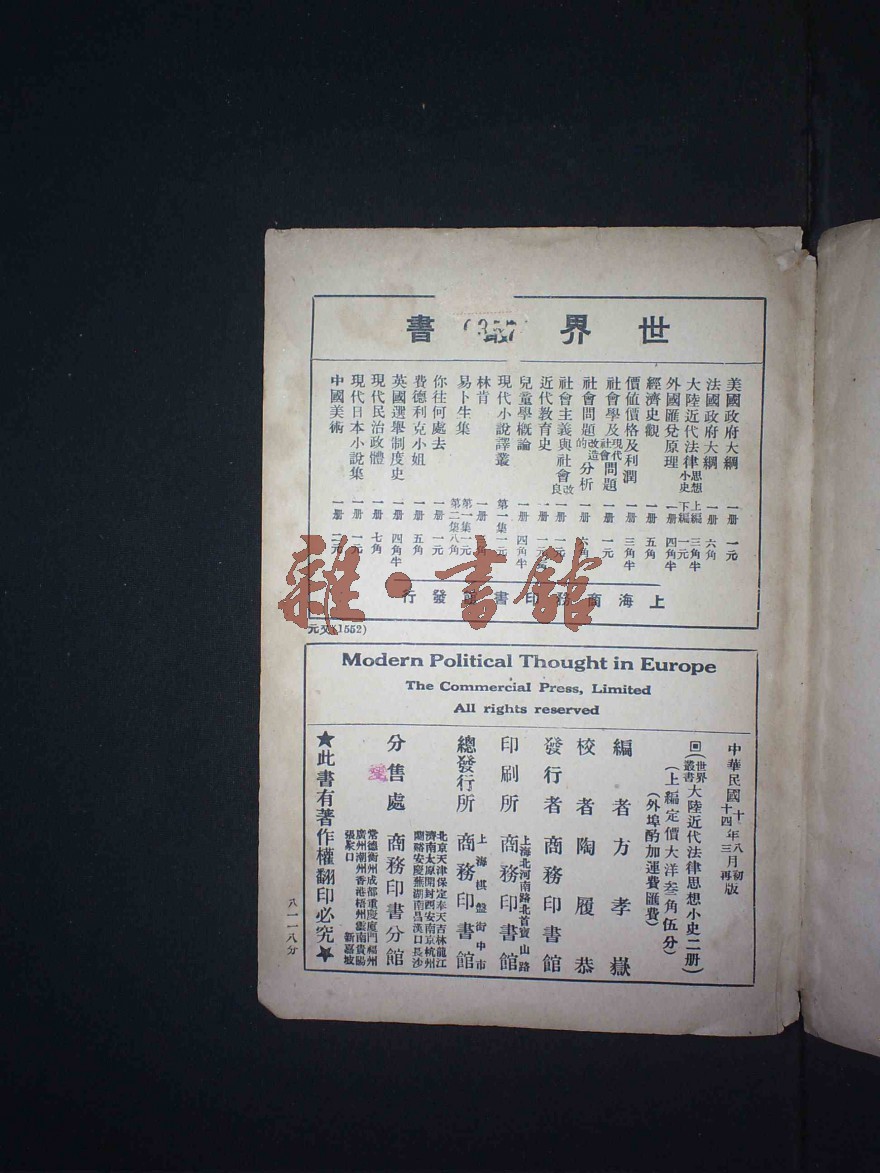 世界叢書
美國政府大綱 一册 一元
法國政府大綱 一册 六角
大陸近代法律思想小史 上編 三角半 下編 一元
外國匯兌原理 一册 四角半
經濟史觀 一册 五角
價值價格及利潤 一册 三角半
社會學及現代社會問題 一册 一元
社會問題的改造分析 一册 六角
社會主義與社會改良 一册 一元
近代教育史 一册
兒童學概論 一册 四角半
現代小說譯叢 第一集 一元
林肯 一册
易卜生集 第一集 一元 第二集 八角
你往何處去 一册 一元
費德利克小姐 一册 五角
英國選舉制度史 一册 四角半
現代民治政體 一册 七角
現代日本小說集 一册 一元
中國美術 一册 二元
上海商務印書館發行
元文(1552)
Modern Political Thought in Europe
The Commercial Press, Limited
All rights reserved
中華民國十年八月初版
十四年三再版
回(世界叢書)大陸近代法律思想小史二册
(上編定價大洋叁角伍分)
(外埠酌加運費匯費)
編者 方孝嶽
校者 陶履恭
發行者 商務印書館
印刷所 上海北河南路北首寶山路 商務印書館
總發行所 上海棋盤街中市 商務印書館
分售處 商務印書分館
北京天津保定奉天吉林龍江
濟南太原開封西安南京杭州
蘭谿安慶蕪湖南昌漢口長沙
常德衡州成都重慶廈門福州
廣州潮州香港梧州雲南貴陽
張家口 新嘉坡
★此書有著作權翻印必究★
八一一八分
雜·書館